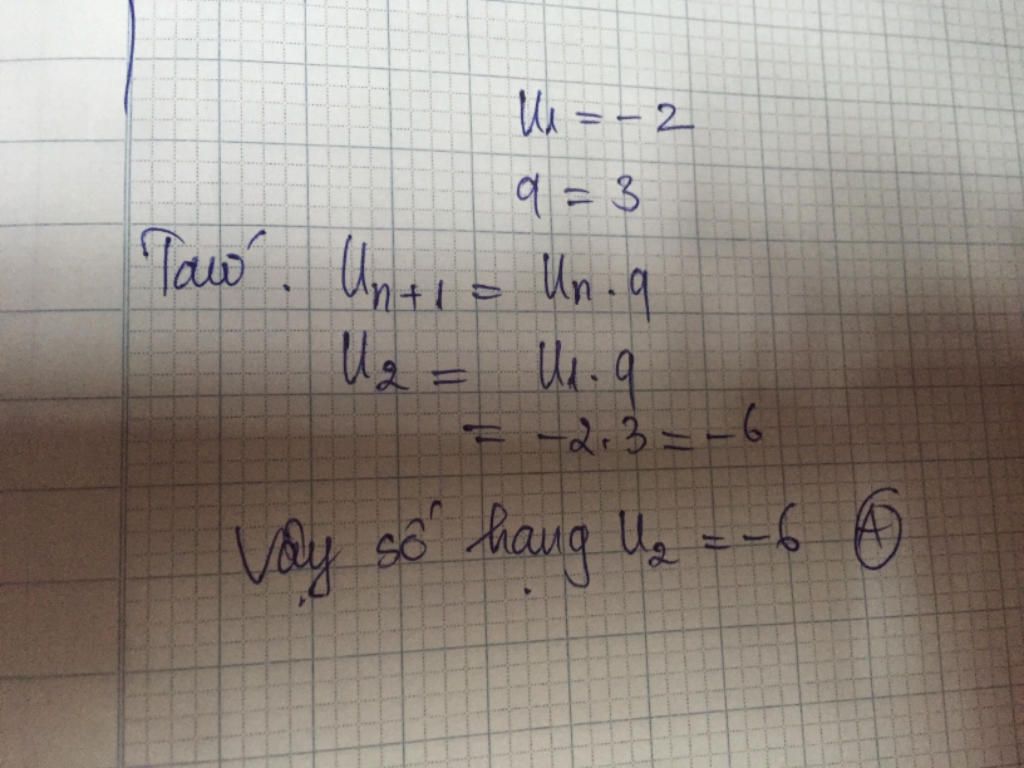 U₁ = -2
q = 3
Ta có. Uₙ₊₁ = Uₙ . q
U₂ = U₁ . q
= -2 . 3 = -6
Vậy số hạng U₂ = -6 Ⓐ